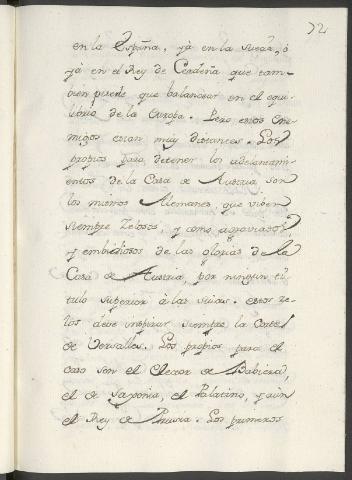 72
en la España, yà en la Suecia, ó
yà en el Rey de Cerdeña que tam-
bien puede que balancear en el equi-
librio de la Europa. Pero estos ene-
migos estan muy distantes. Los
propios para detener los adelantam-
ientos de la Casa de Austria son
los mismos Alemanes, que viben
siempre Zelosos, y como agraviados,
y embidiosos de las glorias de la
Casa de Austria, por ningun ti-
tulo superior à las suias. estos ze-
los debe inspirar siempre la Corte
de Versalles. Los propios para el
caso son el Elector de Babiera,
el de Saxonia, el Palatino, y aun
el Rey de Prusia. Los primeros